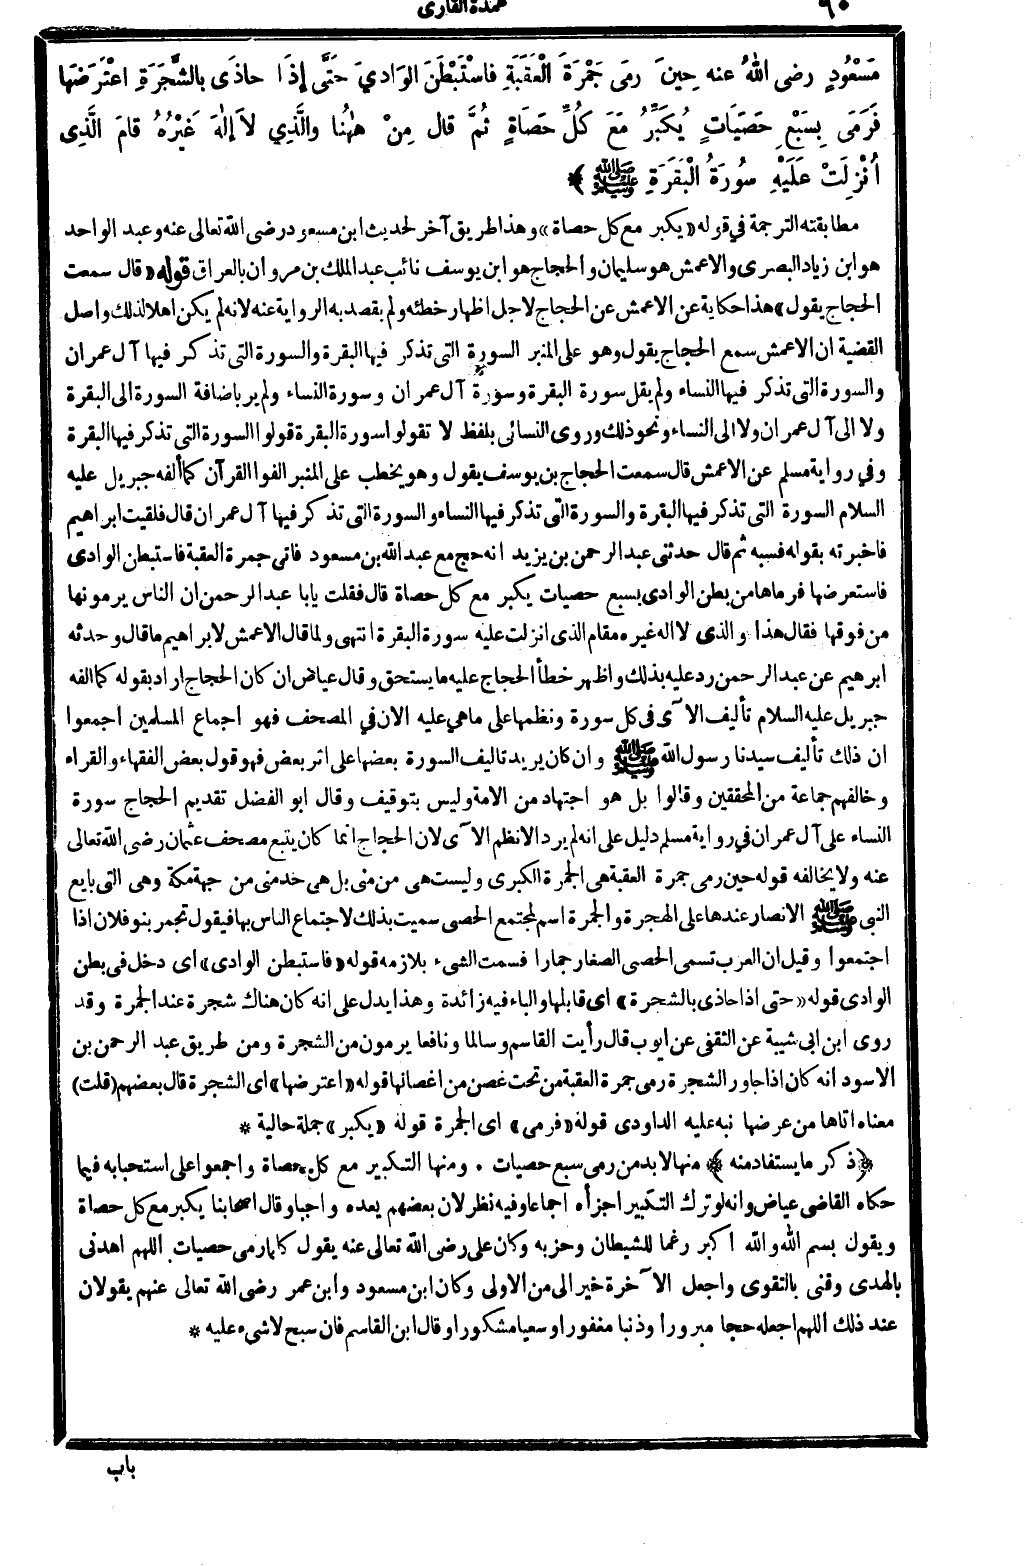 ٩٠
عمدة القارى
مَسْعُودٍ رضى اللهُ عنه حِينَ رمَى جَمْرَةَ الْعَقَبَةِ فاسْتَبْطَنَ الوَادِيَ حَتَّى إذَا حاذَى بالشَّجَرَةِ اعْتَرَضَها
فَرَمَى بِسَبْعِ حَصَيَاتٍ يُكَبِّرُ مَعَ كُلِّ حَصَاةٍ ثُمَّ قال مِنْ هٰهُنا والَّذِي لاَ إلٰهَ غَيْرُهُ قامَ الَّذِى
أُنْزِلَتْ عَلَيْهِ سُورَةُ الْبَقَرَةِ ﷺ ﴾
مطابقته الترجمة في قوله «يكبر مع كل حصاة» وهذا طريق آخر لحديث ابن مسعود رضى الله تعالى عنه وعبد الواحد
هو ابن زياد البصرى والاعمش هو سليمان والحجاج هو ابن يوسف نائب عبد الملك بن مروان بالعراق قوله «قال سمعت
الحجاج يقول» هذا حكاية عن الاعمش عن الحجاج لاجل اظهار خطئه ولم يقصد به الرواية عنه لانه لم يكن اهلا لذلك واصل
القضية ان الاعمش سمع الحجاج يقول وهو على المنبر السورة التى تذكر فيها البقرة والسورة التى تذكر فيها آل عمران
والسورة التى تذكر فيها النساء ولم يقل سورة البقرة وسورة آل عمران وسورة النساء ولم ير باضافة السورة الى البقرة
ولا الى آل عمران ولا الى النساء ونحو ذلك وروى النسائى بلفظ لا تقولوا سورة البقرة قولوا السورة التى تذكر فيها البقرة
وفي رواية مسلم عن الاعمش قال سمعت الحجاج بن يوسف يقول وهو يخطب على المنبر الفوا القرآن كما ألفه جبريل عليه
السلام السورة التى تذكر فيها البقرة والسورة التى تذكر فيها النساء والسورة التى تذكر فيها آل عمران قال فلقيت ابراهيم
فاخبرته بقوله فسبه ثم قال حدثنى عبد الرحمن بن يزيد انه حج مع عبد الله بن مسعود فاتى جمرة العقبة فاستبطن الوادى
فاستعرضها فرماها من بطن الوادى بسبع حصيات يكبر مع كل حصاة قال فقلت يابا عبد الرحمن ان الناس يرمونها
من فوقها فقال هذا والذى لا اله غيره مقام الذى انزلت عليه سورة البقرة انتهى ولما قال الاعمش لابراهيم ما قال وحدثه
ابرهيم عن عبد الرحمن رد عليه بذلك واظهر خطأ الحجاج عليه ما يستحق وقال عياض ان كان الحجاج اراد بقوله كما الفه
جبريل عليه السلام تأليف الآى فى كل سورة ونظمها على ماهي عليه الان في المصحف فهو اجماع المسلمين اجمعوا
ان ذلك تأليف سيدنا رسول الله ﷺ وان كان يريد تاليف السورة بعضها على اثر بعض فهو قول بعض الفقهاء والقراء
وخالفهم جماعة من المحققين وقالوا بل هو اجتهاد من الامة وليس بتوقيف وقال ابو الفضل تقديم الحجاج سورة
النساء على آل عمران في رواية مسلم دليل على انه لم يرد الا نظم الآى لان الحجاج انما كان يتبع مصحف عثمان رضى الله تعالى
عنه ولا يخالفه قوله حين رمى جمرة العقبة هى الجمرة الكبرى وليست هى من منى بل هى حد منى من جهة مكة وهى التى بايع
النبى ﷺ الانصار عندها على الهجرة والجمرة اسم لمجتمع الحصى سميت بذلك لاجتماع الناس بها فيقول تجمر بنو فلان اذا
اجتمعوا وقيل ان العرب تسمى الحصى الصغار جمارا فسمت الشىء بلازمه قوله «فاستبطن الوادى» اى دخل فى بطن
الوادى قوله «حتى اذا حاذى بالشجرة» اى قابلها والباء فيه زائدة وهذا يدل على انه كان هناك شجرة عند الجمرة وقد
روى ابن ابى شيبة عن الثقفى عن ايوب قال رأيت القاسم وسالما ونافعا يرمون من الشجرة ومن طريق عبد الرحمن بن
الاسود انه كان اذا جاور الشجرة رمى جمرة العقبة من تحت غصن من اغصانها قوله «اعترضها» اى الشجرة قال بعضهم (قلت)
معناه اتاها من عرضها نبه عليه الداودى قوله «فرمى» اى الجمرة قوله «يكبر» جملة حالية *
﴿ذكر ما يستفاد منه﴾ منها لابد من رمى سبع حصيات . ومنها التكبير مع كل حصاة واجمعوا على استحبابه فيما
حكاه القاضى عياض وانه لو ترك التكبير اجزأه اجماعا وفيه نظر لان بعضهم يعده واجبا وقال اصحابنا يكبر مع كل حصاة
ويقول بسم الله والله اكبر رغما للشيطان وحزبه وكان على رضى الله تعالى عنه يقول كلما رمى حصيات اللهم اهدنى
بالهدى وقنى بالتقوى واجعل الآخرة خير الى من الاولى وكان ابن مسعود وابن عمر رضى الله تعالى عنهم يقولان
عند ذلك اللهم اجعله حجا مبرورا وذنبا مغفورا وسعيا مشكورا وقال ابن القاسم فان سبح لاشىء عليه *
باب